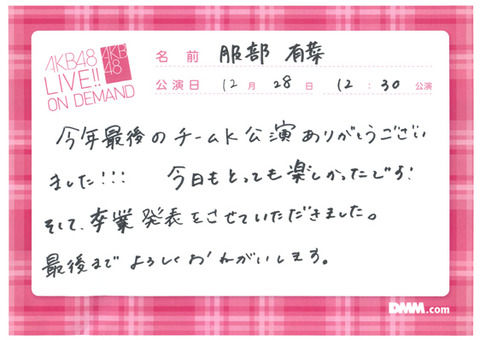 AKB48
LIVE!!
ON DEMAND
AKB
48
名前 服部有菜
公演日 12月28日 12:30公演
今年最後のチームK公演ありがとうござい
ました!!! 今日もとっても楽しかったです!
そして、卒業発表をさせていただきました。
最後までよろしくおねがいします。
DMM.com